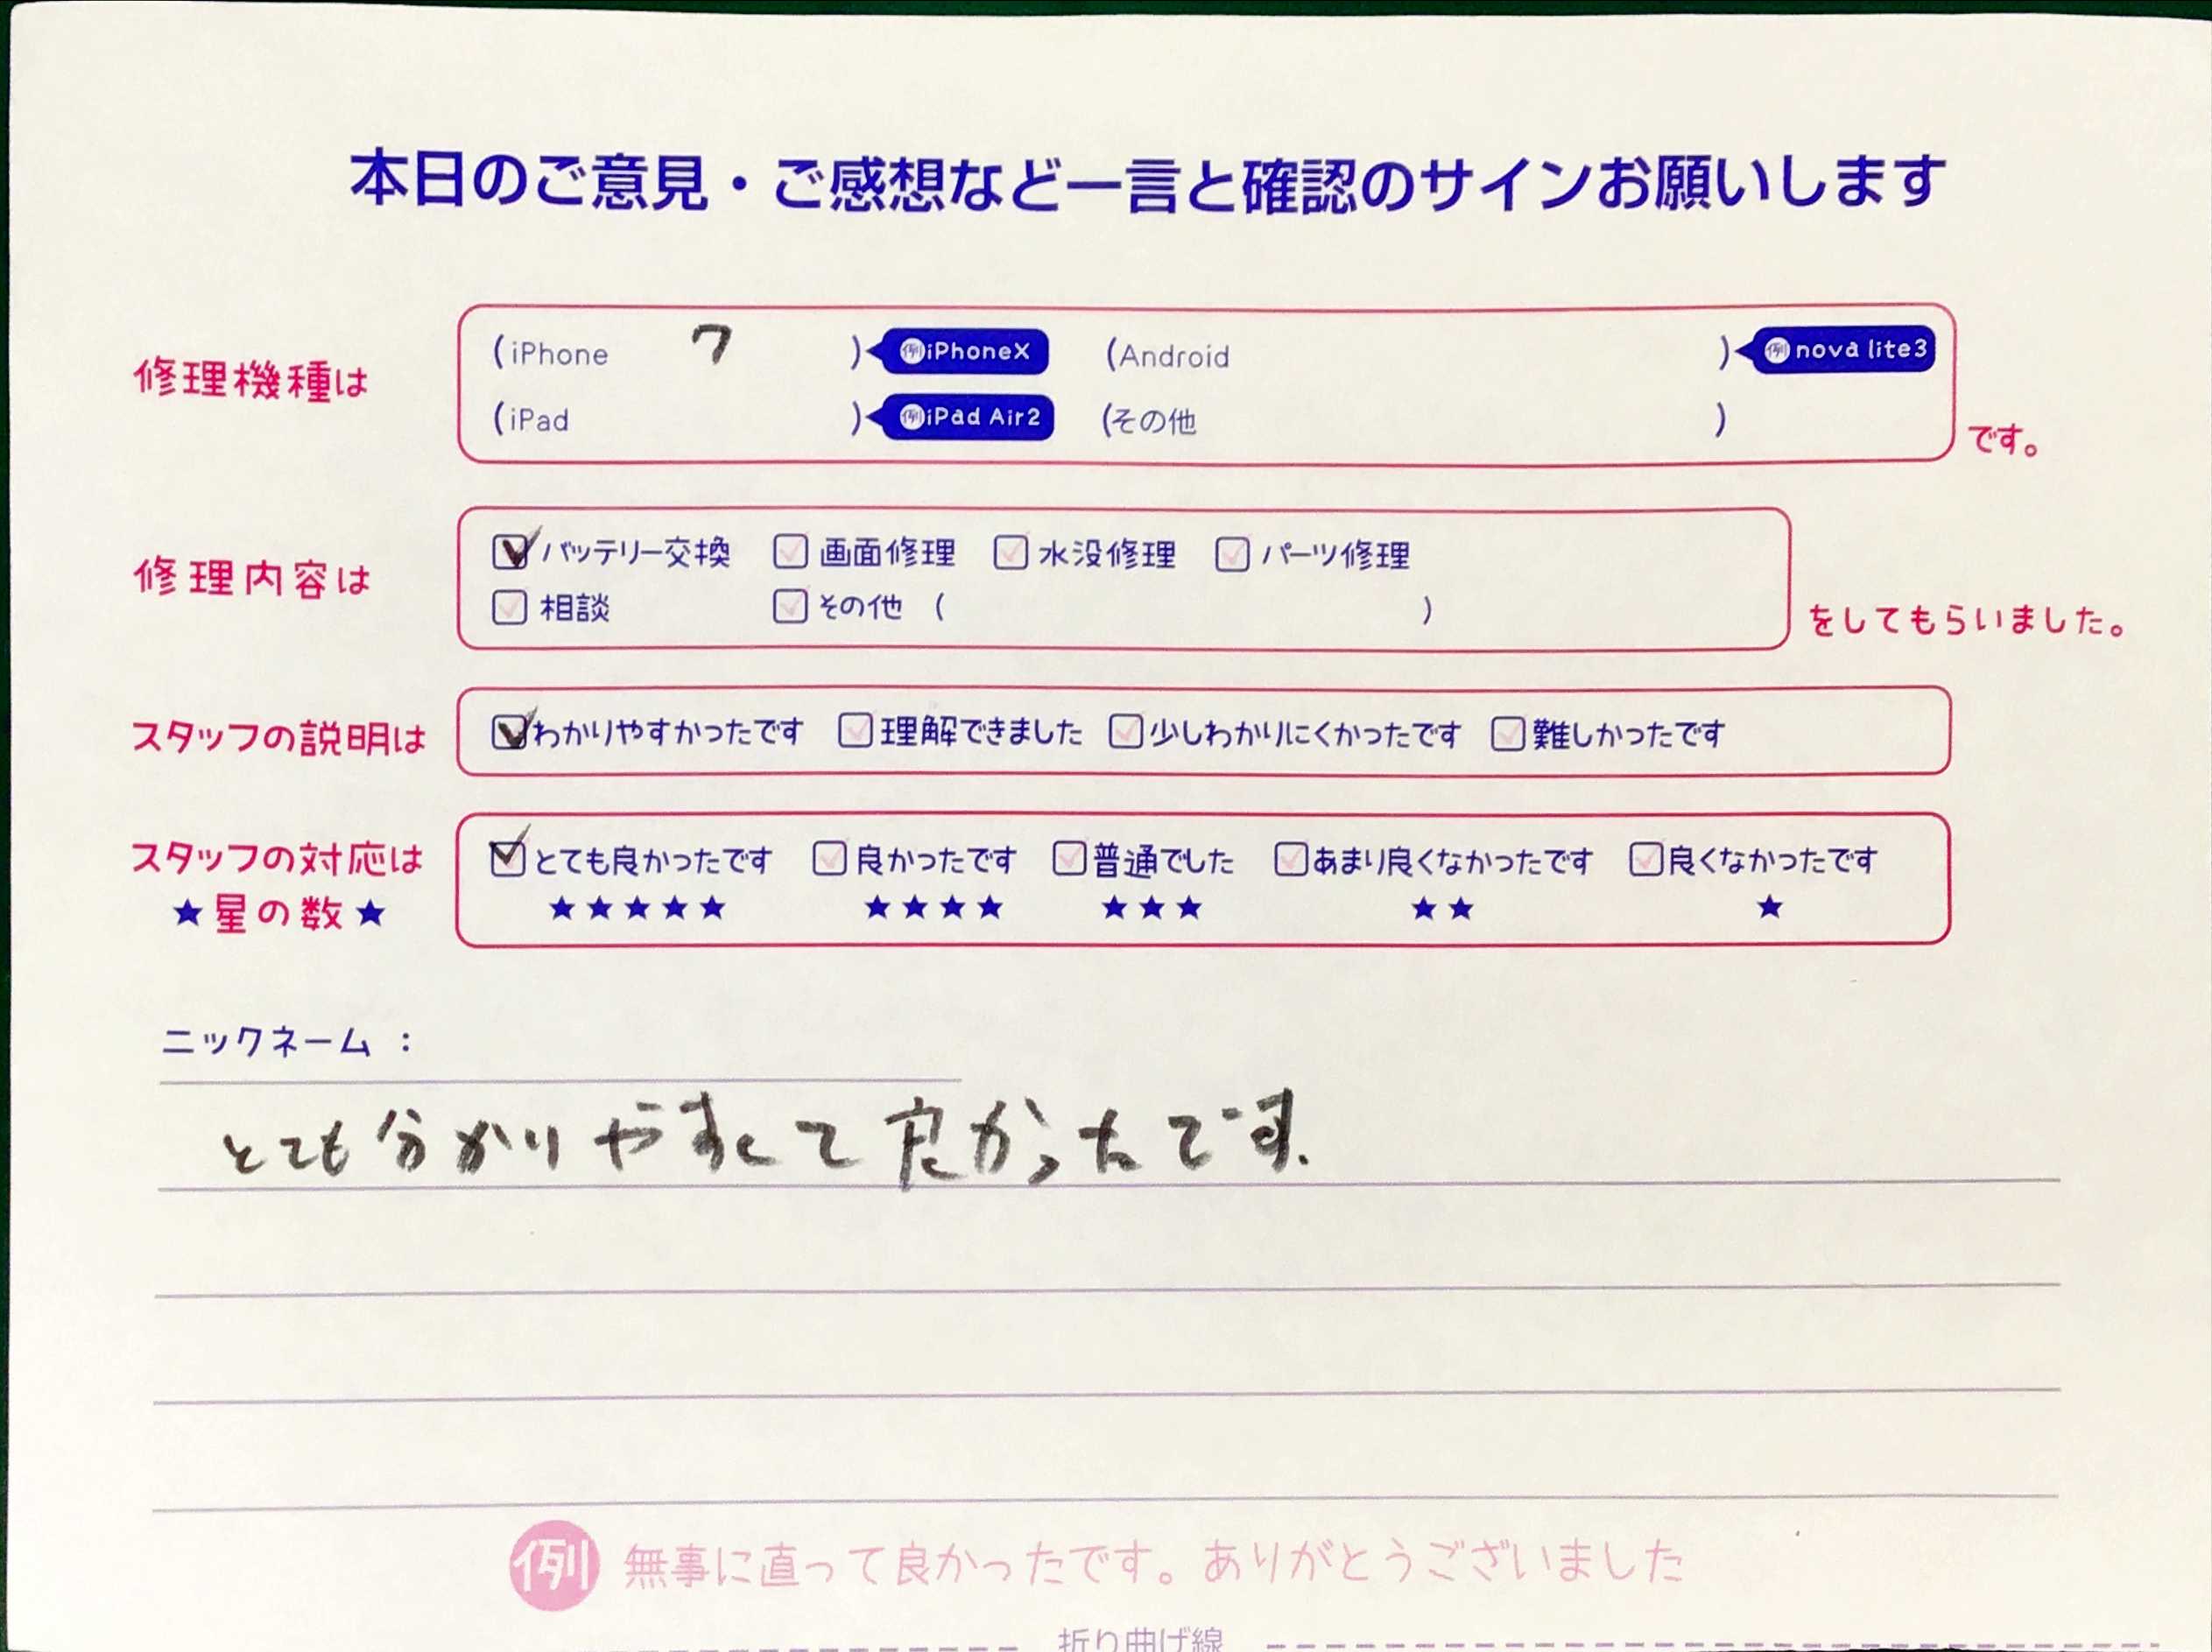 本日のご意見・ご感想など一言と確認のサインお願いします
修理機種は
(iPhone 7 ) 例iPhoneX (Android ) 例nova lite3
(iPad ) 例iPad Air2 (その他 ) です。
修理内容は
バッテリー交換 画面修理 水没修理 パーツ修理
相談 その他 ( ) をしてもらいました。
スタッフの説明は わかりやすかったです 理解できました 少しわかりにくかったです 難しかったです
スタッフの対応は とても良かったです 良かったです 普通でした あまり良くなかったです 良くなかったです
★星の数★ ★★★★★ ★★★★ ★★★ ★★ ★
ニックネーム :
とても分かりやすくて良かったです.
例 無事に直って良かったです。ありがとうございました
折り曲げ線